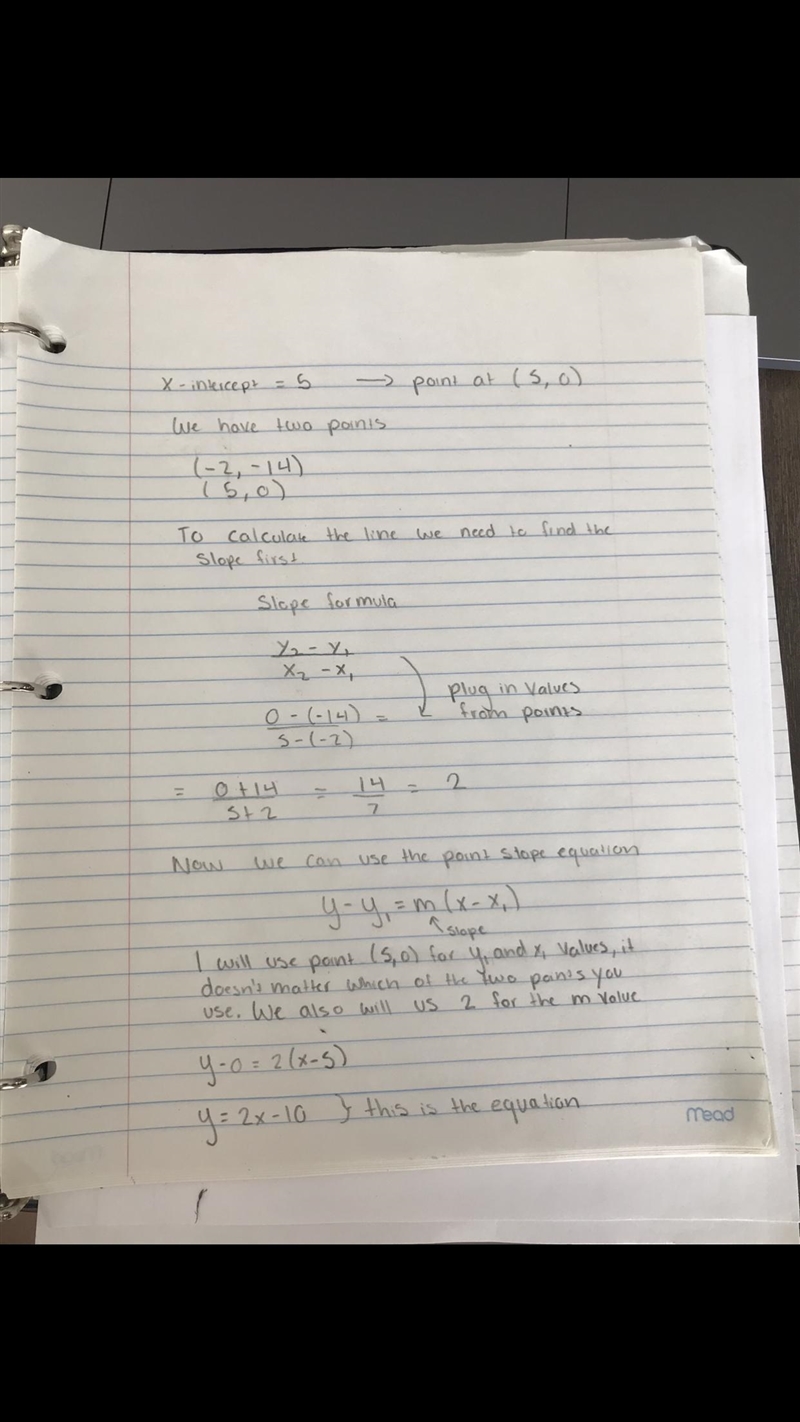 x-intercept = 5 → point at (5, 0)
We have two points
(-2, -14)
(5, 0)
To calculate the line we need to find the
slope first
Slope formula
y₂ - y₁
x₂ - x₁
plug in values
from points
0 - (-14) =
5 - (-2)
= 0 + 14 = 14 = 2
5 + 2 7
Now we can use the point slope equation
y - y₁ = m(x - x₁)
↑ slope
I will use point (5,0) for y₁ and x₁ values, it
doesn't matter which of the two points you
use. We also will us 2 for the m value
y - 0 = 2(x - 5)
y = 2x - 10 } this is the equation
mead